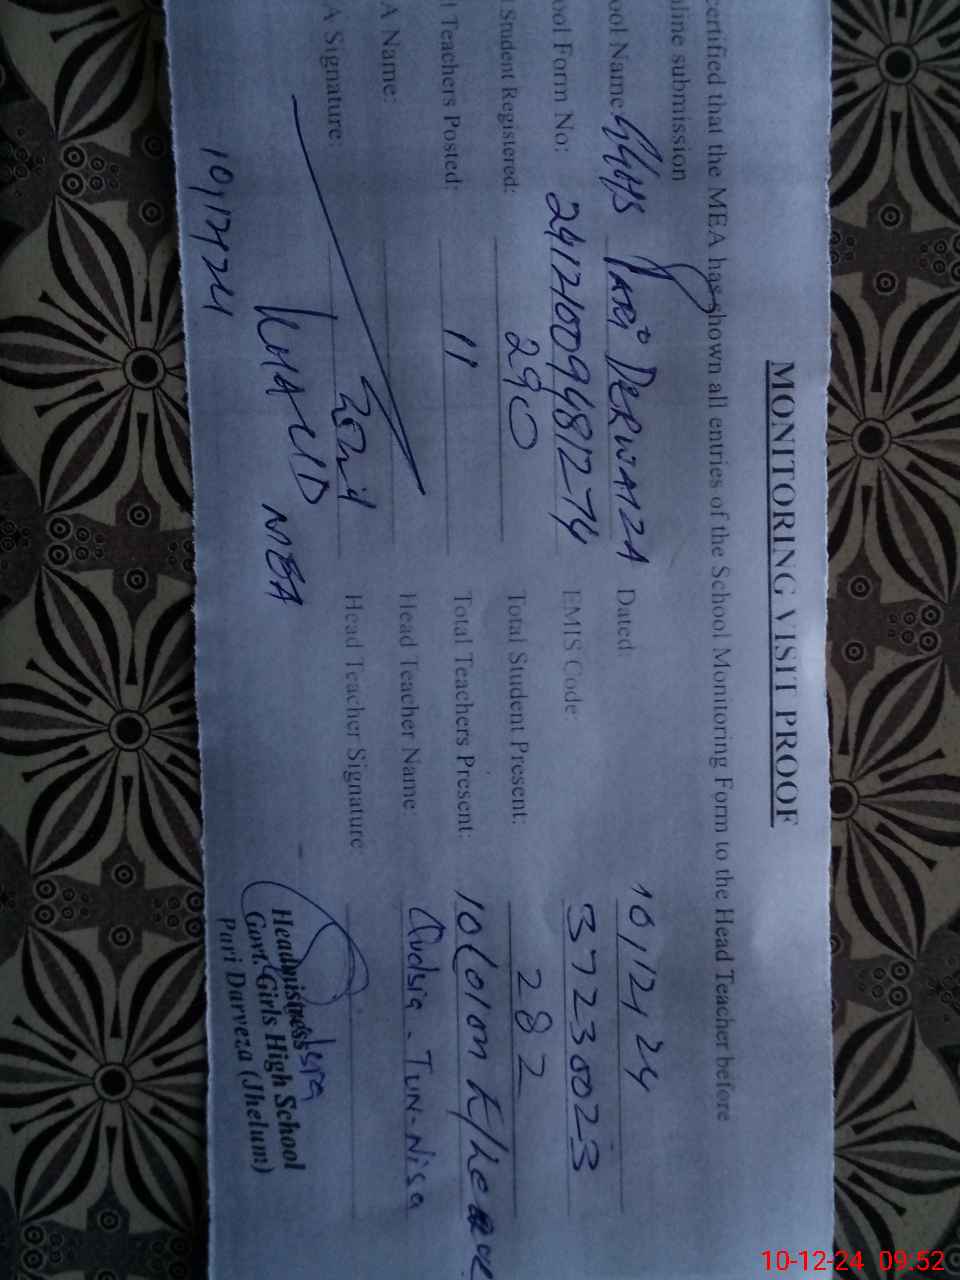 MONITORING VISIT PROOF
certified that the MEA has shown all entries of the School Monitoring Form to the Head Teacher before
line submission
ool Name: GGHS PARI DERWAIZA Dated: 10/12/24
ool Form No: EMIS Code 37230023
Student Registered: 290 Total Student Present: 282
l Teachers Posted: 11 Total Teachers Present: 10
A Name: Head Teacher Name: Qudsia-Tun-Nisa
A Signature: Head Teacher Signature
MEA
10/12/24
Headmistress
Govt. Girls High School
Pari Darveza (Jhelum)
10-12-24 09:52